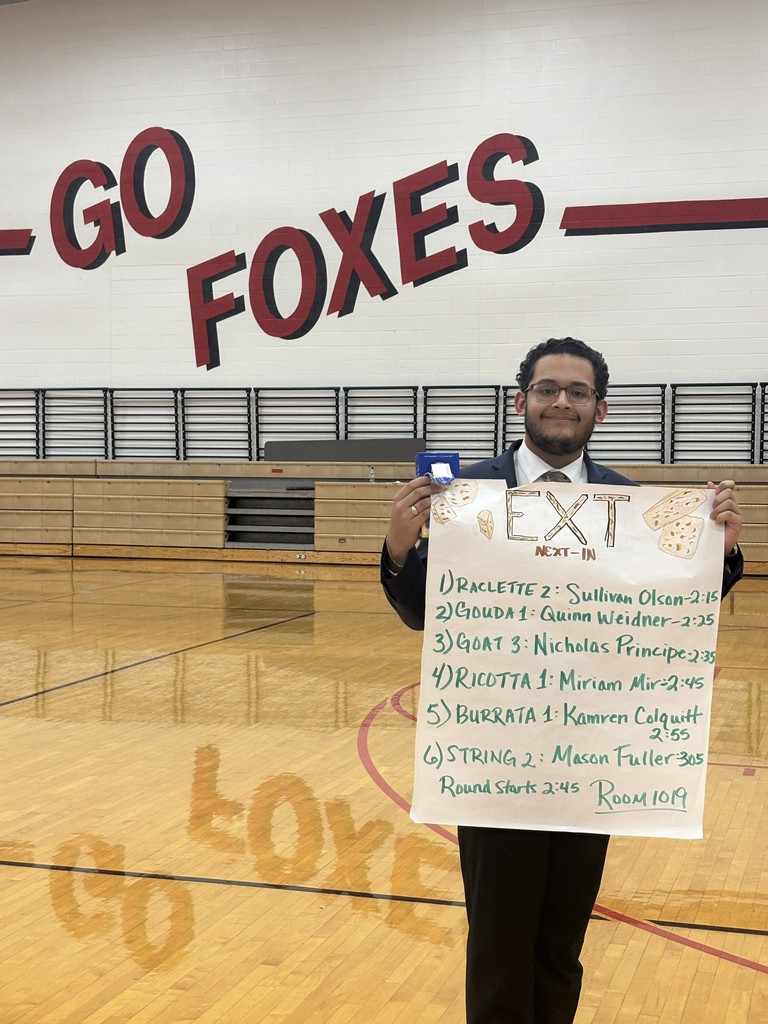 GO
FOXES
EXT
NEXT-IN
1) RACLETTE 2: Sullivan Olson-2:15
2) GOUDA 1: Quinn Weidner-2:25
3) GOAT 3: Nicholas Principe-2:35
4) RICOTTA 1: Miriam Mir-2:45
5) BURRATA 1: Kamren Colquitt
2:55
6) STRING 2: Mason Fuller-305
Round Starts 2:45 ROOM 1019